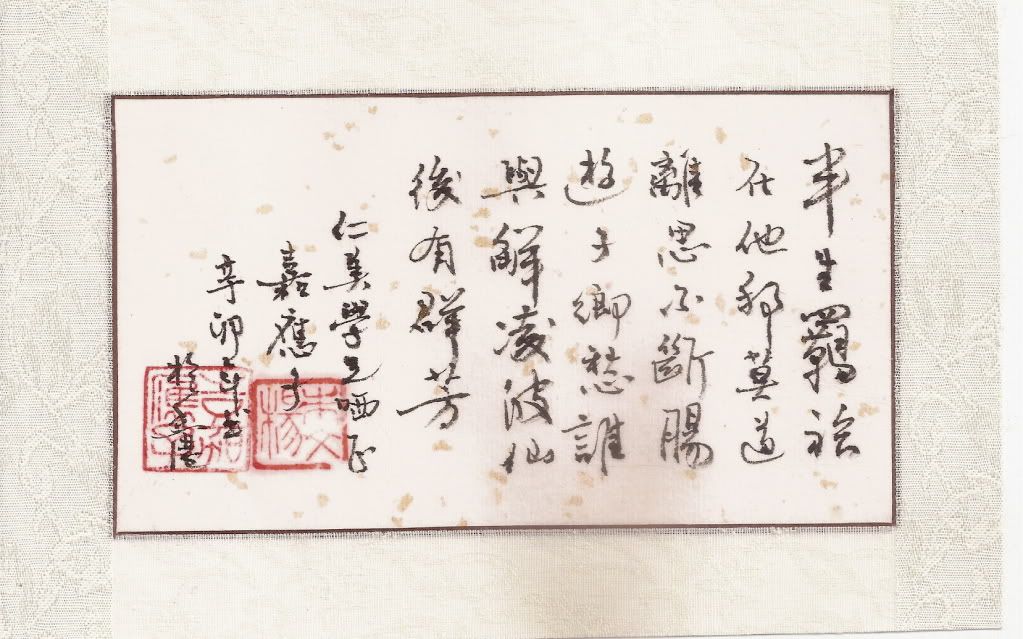 半生羈旅
在他鄉莫道
離思不斷腸
遊子鄉愁誰
與解凌波仙
後有群芳
仁美學兄哂正
嘉應子
辛卯年書
於香港